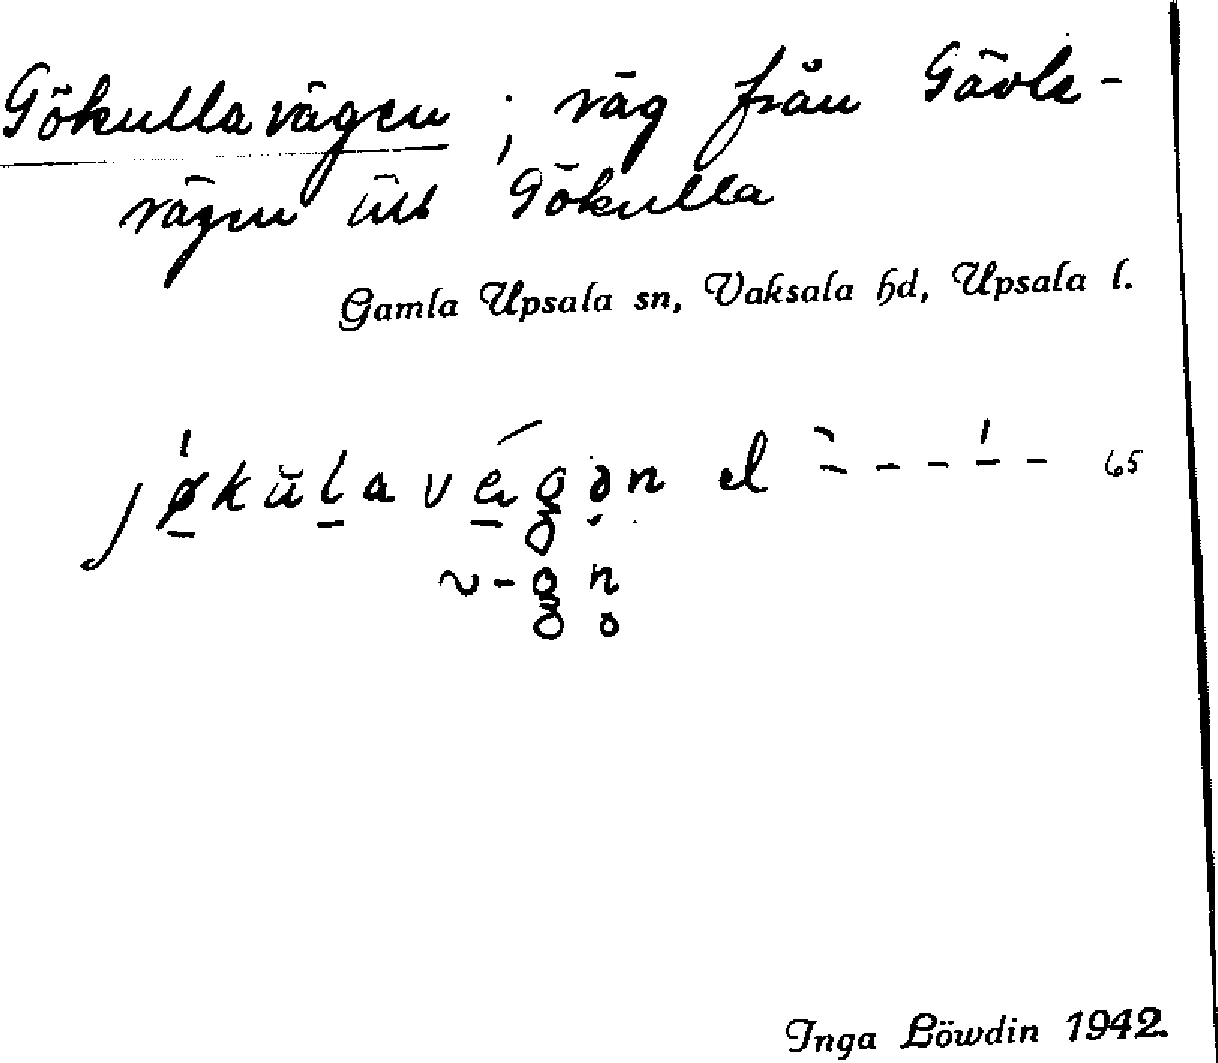 Gökullavägen ; väg från Gävle-
vägen till Gökulla
Gamla Upsala sn, Vaksala hd, Upsala l.
el 65
Inga Löwdin 1942.